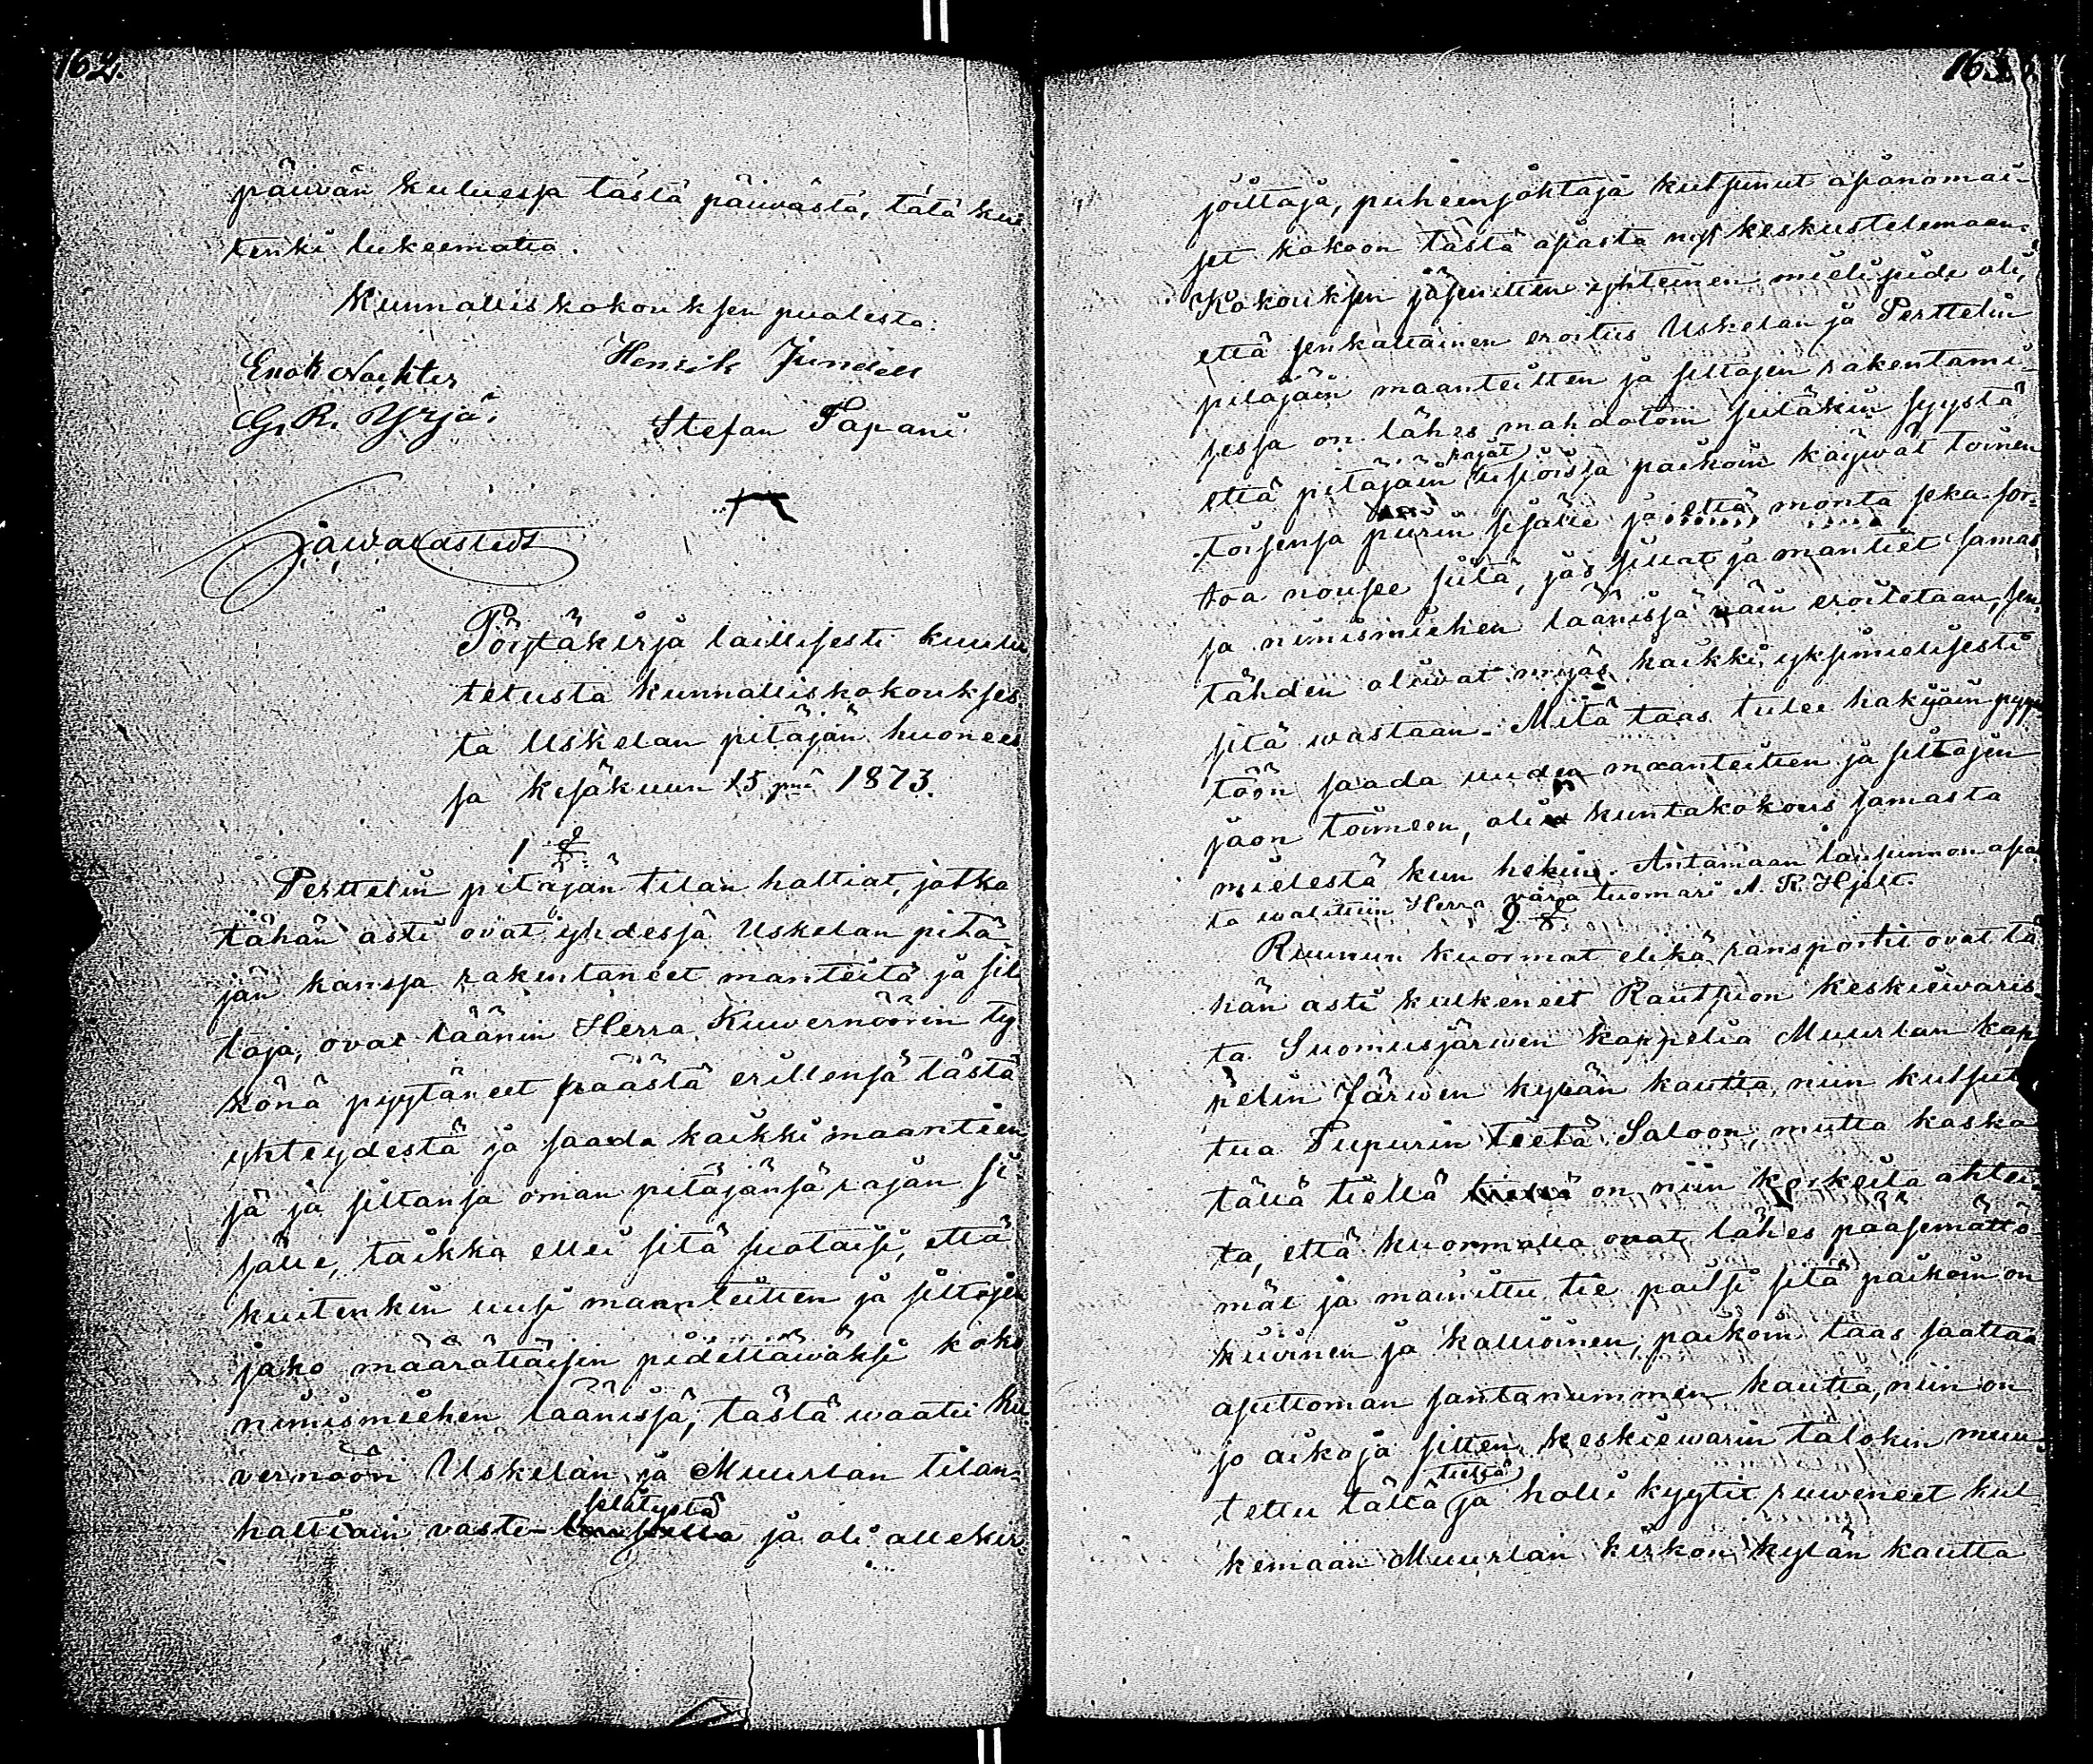 162.
päiwän kuluessa tästä päiwästä, tätä kui-
tenki lukeematta.
Kunnalliskokouksen puolesta:
Enok Nackter Henrik Jundell
G. R. Yrjä. Stefan Tapani
Pöytäkirja laillisesti kuulu
tetusta kunnalliskokoukses
ta Uskelan pitäjän huonees
sa kesäkuun 15 pnä 1873.
1 §
Perttelin pitäjän tilan haltiat, jotka
tähän asti ovat yhdessä Uskelan pitä
jän kanssa rakentaneet manteitä ja sil
toja, ovat läänin Herra Kuwernöörin ty
könä pyytäneet päästä erillensä tästä
yhteydestä ja saada kaikki maantien
sä ja siltansa oman pitäjänsä rajan si
sälle, taikka ellei sitä suotaisi, että
kuitenkin uusi maanteitten ja siltojen
jako määrättäisin pidettäwäksi koko
nimismiehen läänissä, tästä waatii ku
vernööri Uskelan ja Muurlan tilan-
haltiain vasti- selitystä ja oli allekir-
163.
joittaja, puheenjohtaja kutsunut asianomai-
set kokoon tästä asiasta nyt keskustelemaan.
Kokouksen jäsenitten yhteinen mielipide oli,
että senkaltainen eroitus Uskelan ja Perttelin
pitäjäin maanteitten ja siltojen rakentami-
sessa on lähes mahdotoin siitäkin syystä
että pitäjäin rajat usioissa paikoin käywät toinen
toisensa piirin sisälle ja että monta seka sor-
toa nousee siitä, jos sillat ja mantiet samas
sa nimismiehen läänissä näin eroitetaan, sen
tähden oliwat myös kaikki yksimielisesti
sitä wastaan. Mitä taas tulee hakijain pyyn
töön saada uuden maanteitten ja siltojen
jaon toimeen, oli kuntakokous samasta
mielestä kun hekin. Antamaan lausunnon asias
ta walittiin Herra vara tuomari A. R. Hjelt.
2 §.
Ruunun kuormat elikä ransportit ovat tä
hän asti kulkeneet Rautsuon keskiewaris
ta Suomusjärwen kappelia Muurlan kap
pelin Järwen kylän kautta niin kutsut
tua Piipurin tietä Saloon, mutta koska
tällä tiellä on niin korkeita ahtei-
ta, että kuormalla ovat lähes pääsemättö
mät ja mainittu tie paitsi sitä paikoin on
kiwinen ja kallioinen, paikoin taas saattaa
asuttoman santanummen kautta, niin on
jo aikoja sitten keskiewarin talokin muu-
tettu tältä tieltä ja holli kyytit ruweneet kul-
kemaan Muurlan kirkon kylän kautta